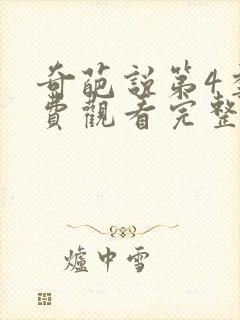 奇葩說第4
費觀看完整
爐中雪